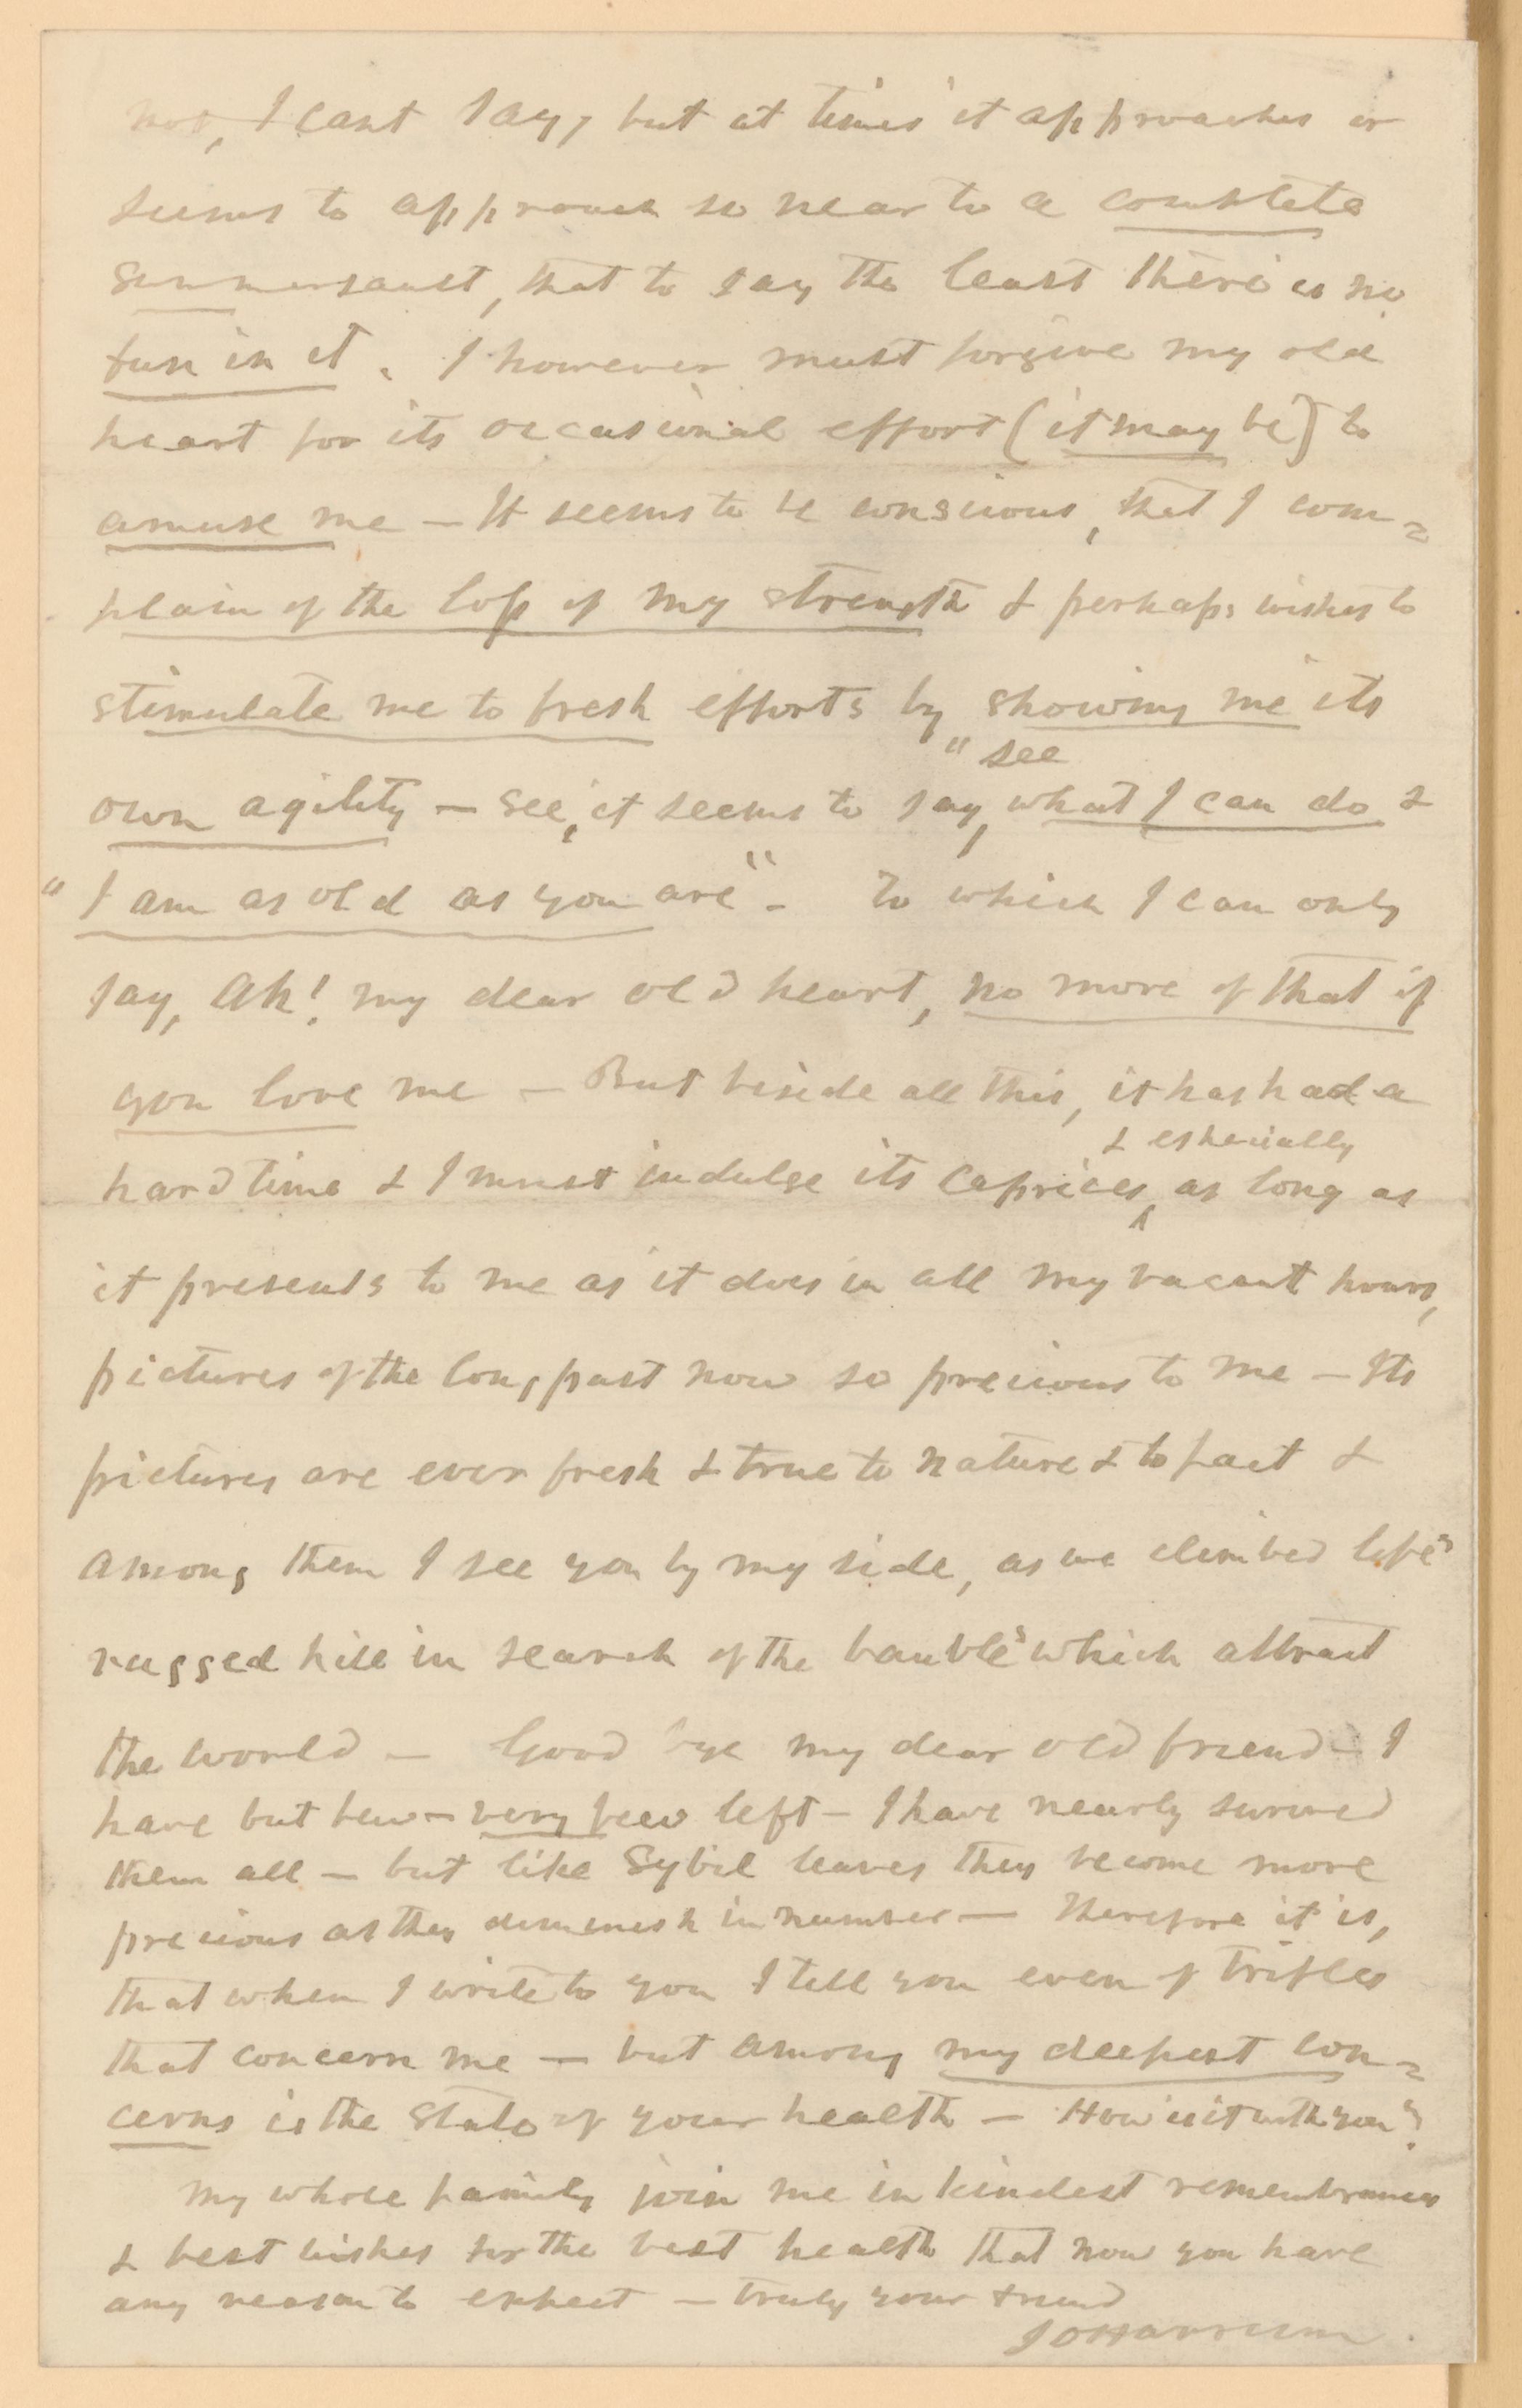 not, I cant say, but at times it approaches or
seems to approach so near to a complete
summersault, that to say the least there is no
fun in it. I however must forgive my old
heart for its occasional effort (it may be) to
amuse me — It seems to be conscious, that I com=
plain of the loss of my strength & perhaps wishes to
stimulate me to fresh efforts by showing me its
" see
own agility — see, it seems to say, what I can do &
" I am as old as you are" - To which I can only
say, Ah! my dear old heart, no more of that if
you love me — But beside all this, it has had a
& especially
hard time & I must indulge its caprices, as long as
it presents to me as it does in all my vacant hours,
pictures of the long past now so precious to me — Its
pictures are ever fresh & true to nature & to fact &
among them I see you by my side, as we climbed life's
rugged hill in search of the bauble's which attract
the world — Good bye my dear old friend — I
have but few — very few left — I have nearly survived
them all — but like Sybil leaves they become more
precious as they diminish in number — Therefore it is,
that when I write to you I tell you even of trifles
that concern me — but among my deepest con=
cerns is the state of your health — How is it with you?
My whole family join me in kindest remembrances
& best wishes for the best health that now you have
any reason to expect — truly your friend